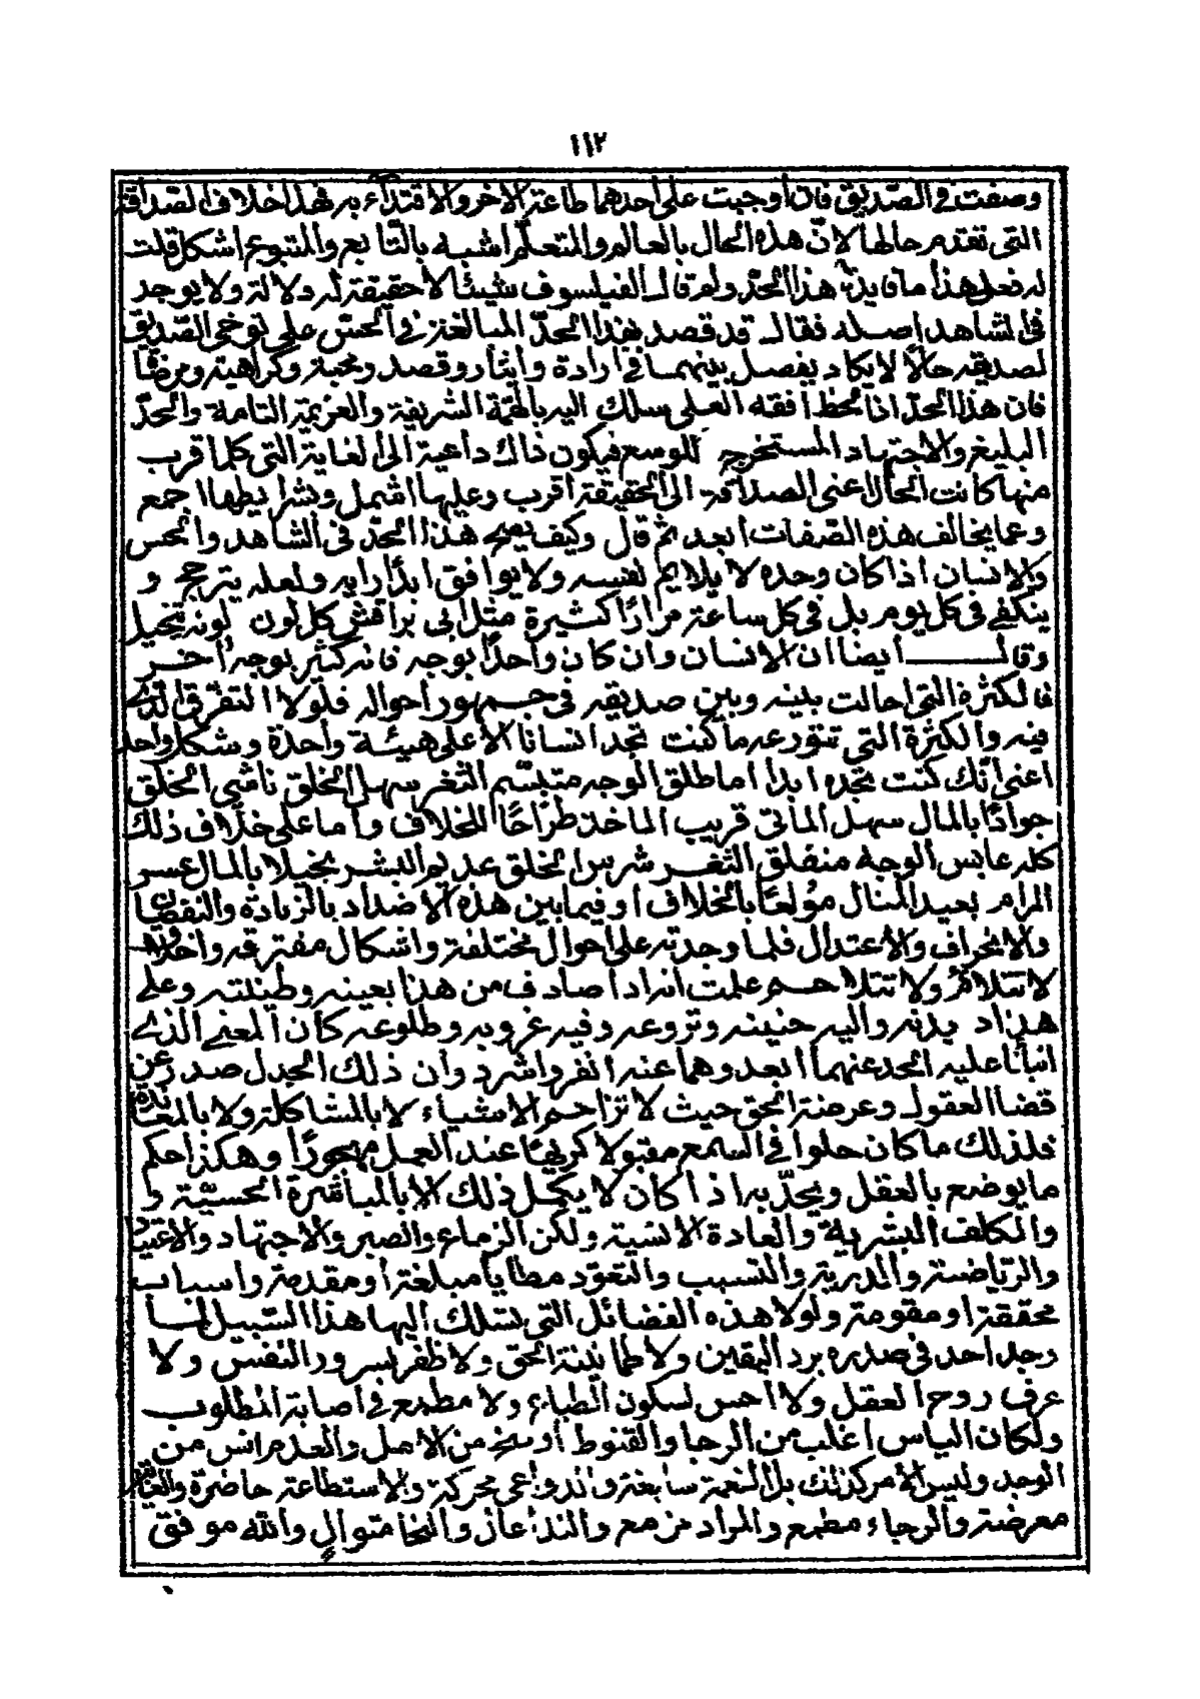 ١١٢
وصفت في الصديق فان أوجبت على أحدهما طاعة الاخر والاقتداء به فهذا خلاف الصداقة
التي تقدم حالها لانّ هذه الحال بالعالم والمتعلّم اشبه بالتّابع والمتبوع اشكل قلت
له فعلى هذا ما فايدة هذا الحدّ ولم قال الفيلسوف شيئا لا حقيقة له دلالة ولا يوجد
في الشاهد اصله فقال قد قصد بهذا الحدّ المبالغة في الحسّ على توخي الصّديق
لصديقه حالا لا يكاد يفصل بينهما في ارادة وايثار وقصد ومحبة وكراهية ومرضاة
فان هذا الحدّ اذا لحظ أفقه العلى سلك اليه بالهمّة الشريفة والعزيمة التامة والحدّ
البليغ والاجتهاد المستخرج للوسع فيكون ذاك داعية الى الغاية التي كلما قرب
منها كانت الحال اعني الصداقة الى الحقيقة اقرب وعليها اشمل وبشرائطها اجمع
وعما يخالف هذه الصّفات ابعد ثم قال وكيف يصح هذا الحدّ في الشاهد والحس
والانسان اذا كان وحده لا يلايم نفسه ولا يوافق ابدًا رايه ولعله يترجح و
ينكفي في كل يوم بل في كل ساعة مرارًا كثيرة مثل ابي براقش كل لون لونه يتخيل
وقال أيضا ان الانسان وان كان واحدًا بوجه فانه كثير بوجه آخر
فالكثرة التي احالت بينه وبين صديقه في جمهور احواله فلولا التفرق الذي
فيه والكثرة التي تتوزعه ما كنت تجد انسانا الا على هيئة واحدة وشكل واحد
اعني انّك كنت تجده ابدا اما طلق الوجه متبسّم الثغر سهل الخلق ناشي الخلق
جوادًا بالمال سهل المأتى قريب الماخذ طراحًا للخلاف واما على خلاف ذلك
كله عابس الوجه منغلق الثغر شرس الخلق عديم البشر بخيلا بالمال عسر
المرام بعيد المنال مؤلعًا بالخلاف او فيما بين هذه الاضداد بالزيادة والنقصان
والانحراف والاعتدال فلما وجدته على احوال مختلفة واشكال مفترقة واخلاق
لا تتلائم ولا تتلاحم علمت انه اذا صادف من هذا بعينه وطينته وعلى
هذا د يدنه واليه حنينه ونزوعه وفيه غروبه وطلوعه كان المعنى الذي
انبأنا عليه الحد عنهما ابعد وهما عنه انفر واشرد وان ذلك الجدل صدر عن
قضا العقول وعرضة الحق حيث لا تزاحم الاشياء لا بالمشاكلة ولا بالمعاندة
فلذلك ما كان حلوا في السمع مقبولا كريهًا عند العمل مهجورًا وهكذا حكم
ما يوضع بالعقل ويحدّ به اذا كان لا يكمل ذلك الا بالمباشرة الحسيّة و
والكلف البشرية والعادة الانسية ولكن الزماع والصبر والاجتهاد والاعتياد
والرّياضة والمدربة والتسبب والتعوّد مطايا مبلغة أو مقدمة واسباب
محققة او مقومة ولولا هذه الفضائل التي يسلك اليها هذا السّبيل لما
وجد احد في صدره برد اليقين ولا طمانينة الحق ولا ظفر بسرور النفس ولا
عرف روح العقل ولا احس لسكون الطباع ولا مطمع في اصابة المطلوب
ولكان الياس اغلب من الرجا والقنوط أوسخ من الامل والعدم انس من
الوجد وليس الامر كذلك بل النعمة سابغة والدواعي محركة والاستطاعة حاضرة والغاية
معرضة والرجاء مطمع والمراد مزمع والنداء عال والنجا متوالٍ والله موفق